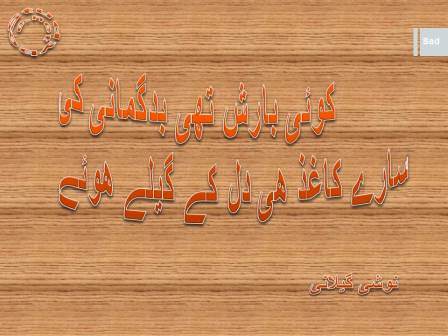 Sad
کوئی بارش تھی بدگمانی کی
سارے کاغذ ھی دل کے گیلے ھوئے
نوشی گیلانی